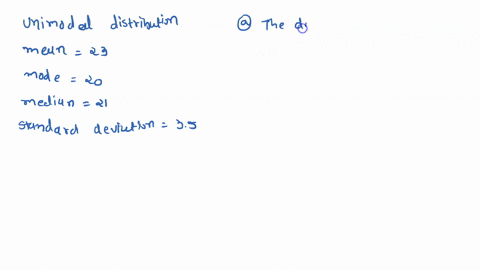 unimodal distribution
mean = 23
mode = 20
median = 21
standard deviation = 3.5
(a) The ds